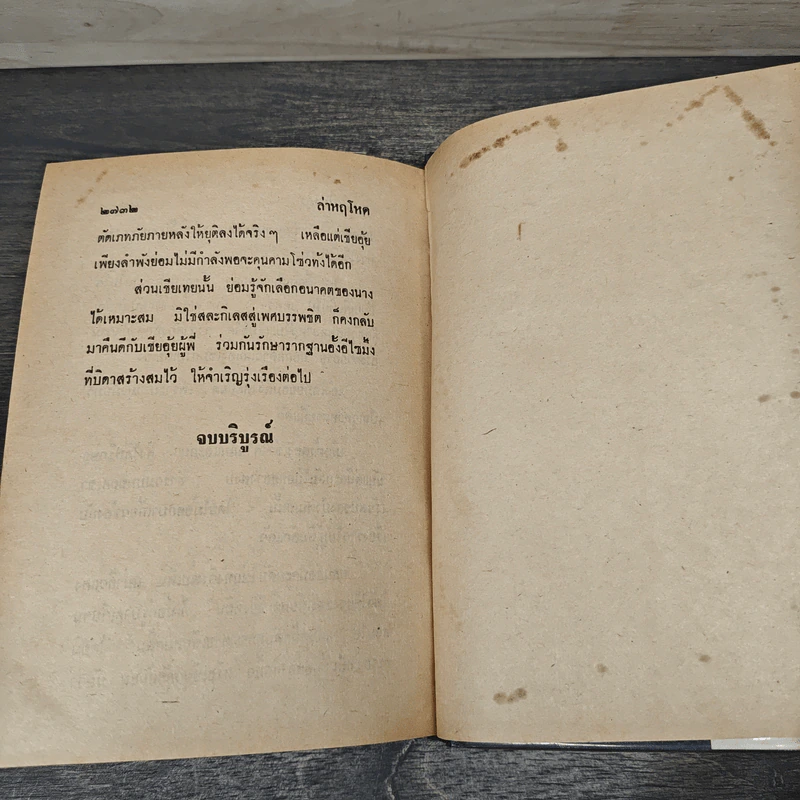 ๒๗๓๒ ล่าหฤโหด
ตัดเภทภัยภายหลังให้ยุติลงได้จริง ๆ เหลือแต่เซียอุ้ย
เพียงลำพังย่อมไม่มีกำลังพอจะคุกคามโช่วทั้งได้อีก
ส่วนเซียเทยนั้น ย่อมรู้จักเลือกอนาคตของนาง
ได้เหมาะสม มิใช่สละกิเลสสู่เพศบรรพชิต ก็คงกลับ
มาคืนดีกับเซียอุ้ยผู้พี่ ร่วมกันรักษารากฐานอั้งอีไซม้ึง
ที่บิดาสร้างสมไว้ ให้จำเริญรุ่งเรืองต่อไป
จบบริบูรณ์